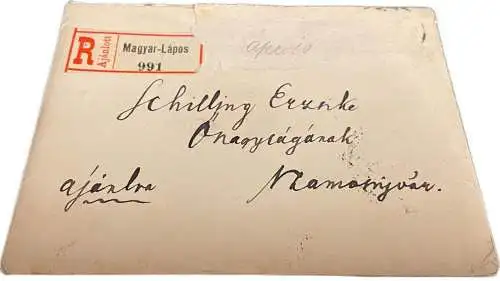 R Ajánlott Magyar-Lápos
991
Schilling Erzsike
Őnagyságának
ajánlva Szamosujvár.